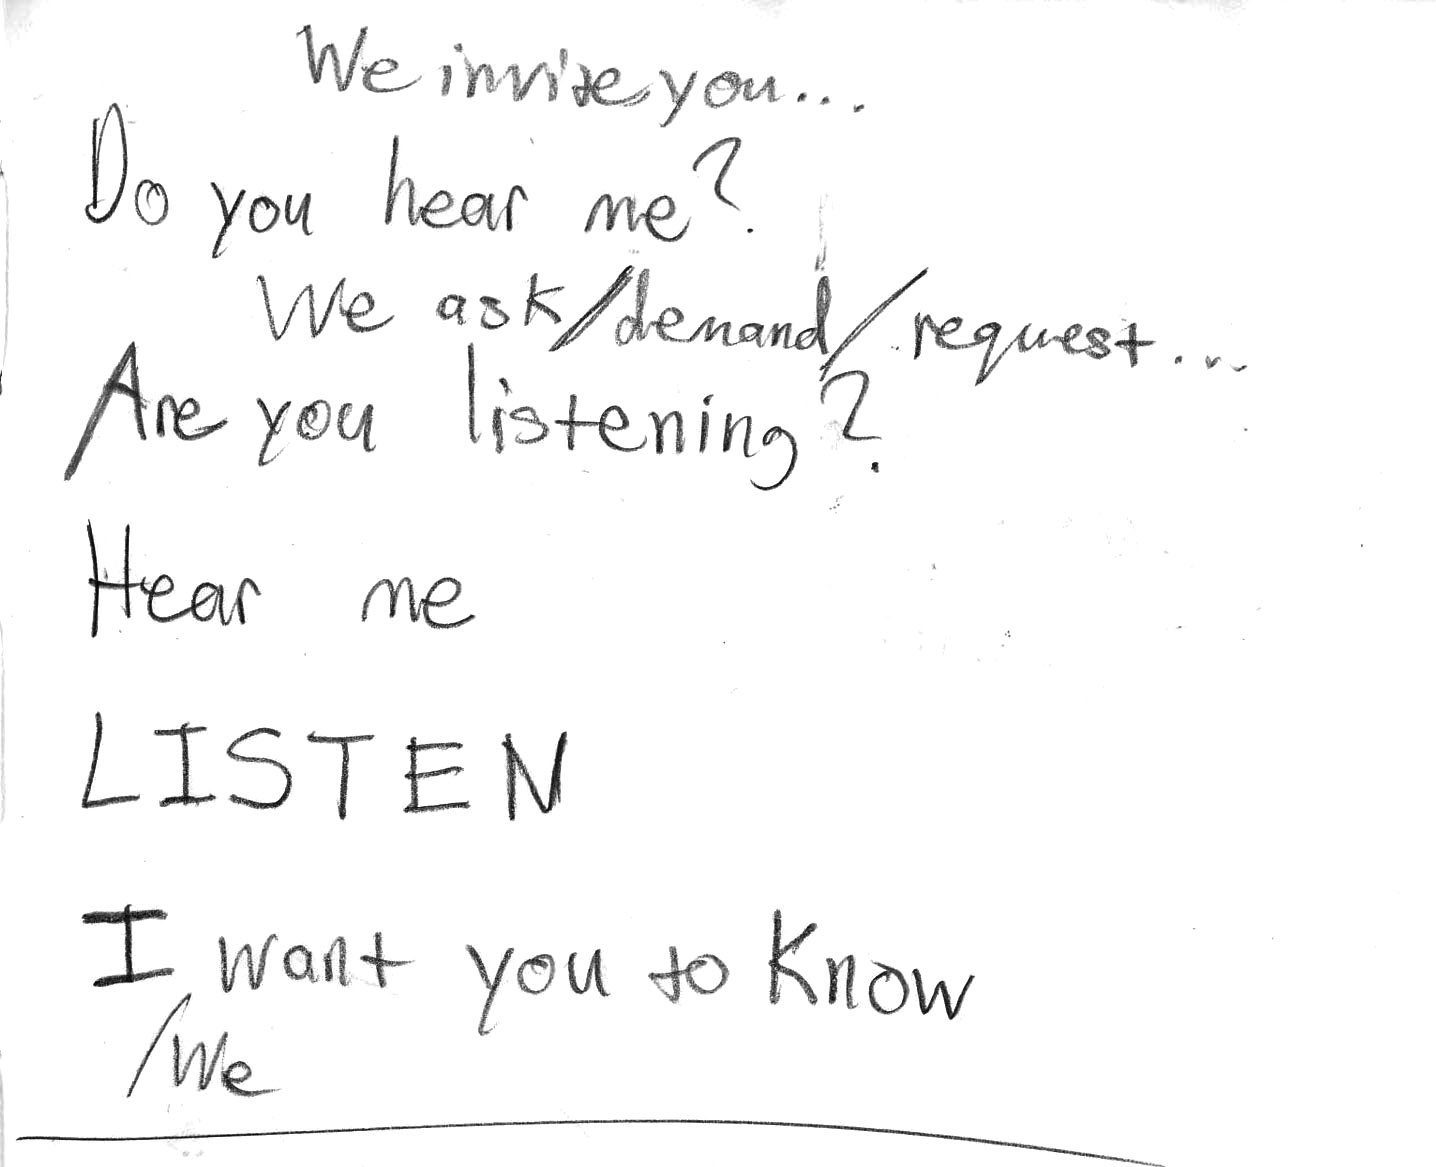 We invite you...
Do you hear me?
We ask/demand/request...
Are you listening?
Hear me
LISTEN
I want you to Know
/We